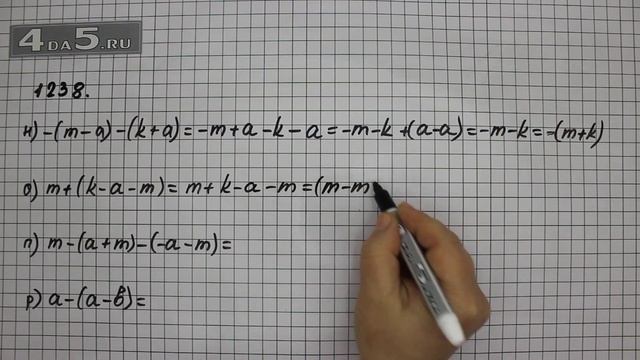 4DA5.RU
1238.
н) -(m-a)-(k+a)=-m+a-k-a=-m-k+(a-a)=-m-k=-(m+k)
о) m+(k-a-m)=m+k-a-m=(m-m
п) m-(a+m)-(-a-m)=
р) a-(a-в)=